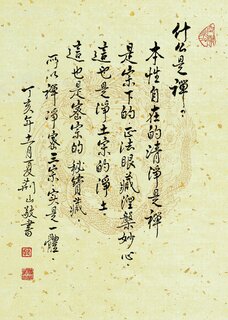 什么是禪：
本性自在的清淨是禪
是宗下的正法眼藏涅槃妙心：
這也是淨土宗的淨土：
這也是密宗的秘密藏
所以禪淨密三宗實是一體：
丁亥年 月夏荆山敬書